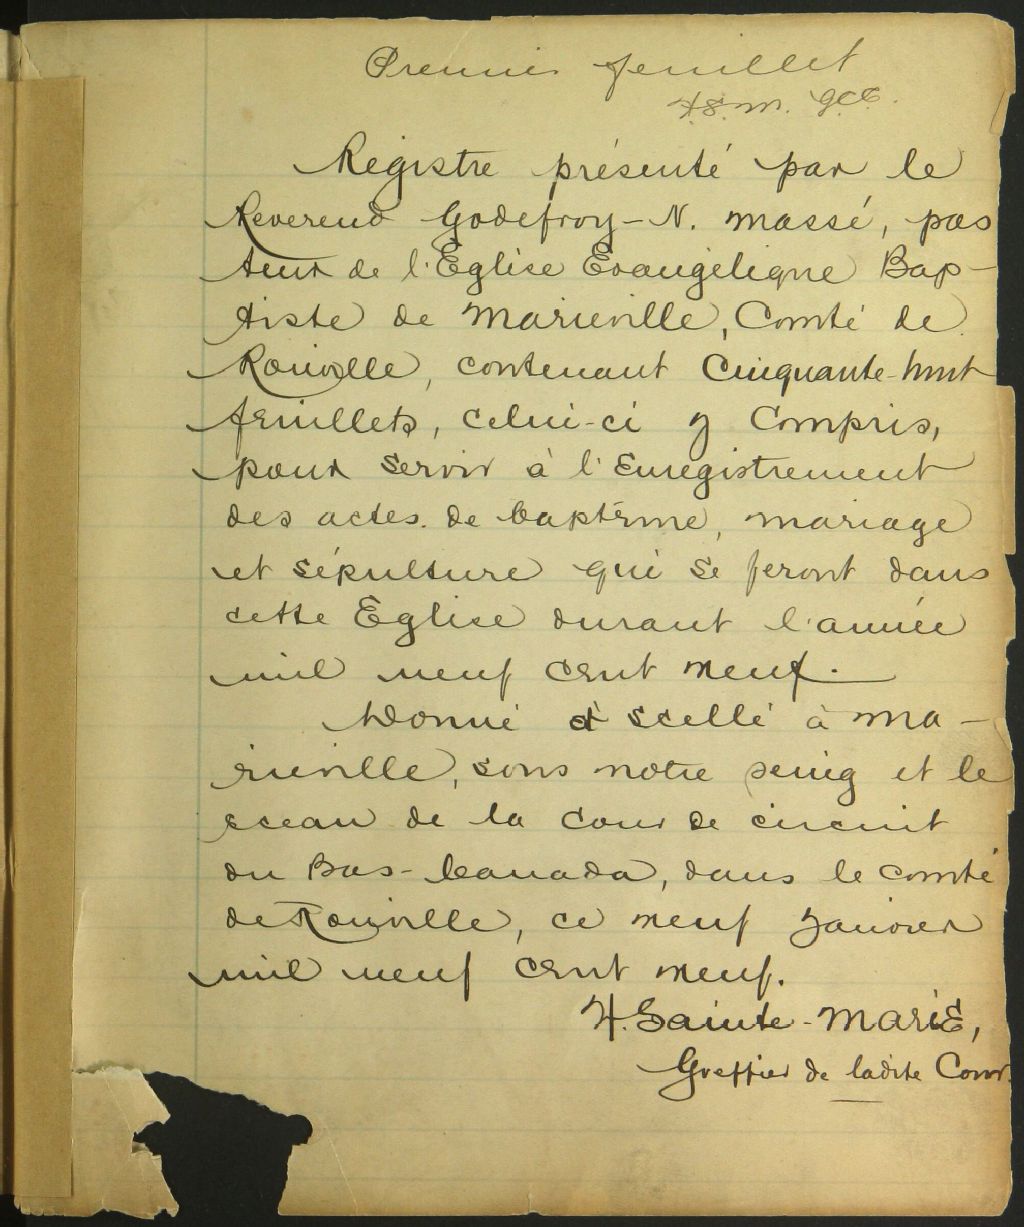 Premier feuillet
H.S.M. G.C.C.
Registre présenté par le
Reverend Godefroy-N. Massé, pas
teur de l'Eglise Evangélique Bap-
tiste de Marieville, Comté de
Rouville, contenant Cinquante-huit
feuillets, celui-ci y Compris,
pour servir à l'Enregistrement
des actes de baptême, mariage
et sépulture qui se feront dans
cette Eglise durant l'année
mil neuf cent neuf.
Donné et scellé à Ma-
rieville, sous notre seing et le
sceau de la Cour de circuit
du Bas-Canada, dans le comté
de Rouville, ce neuf Janvier
mil neuf cent neuf.
H. Sainte-Marie,
Greffier de ladite Cour.